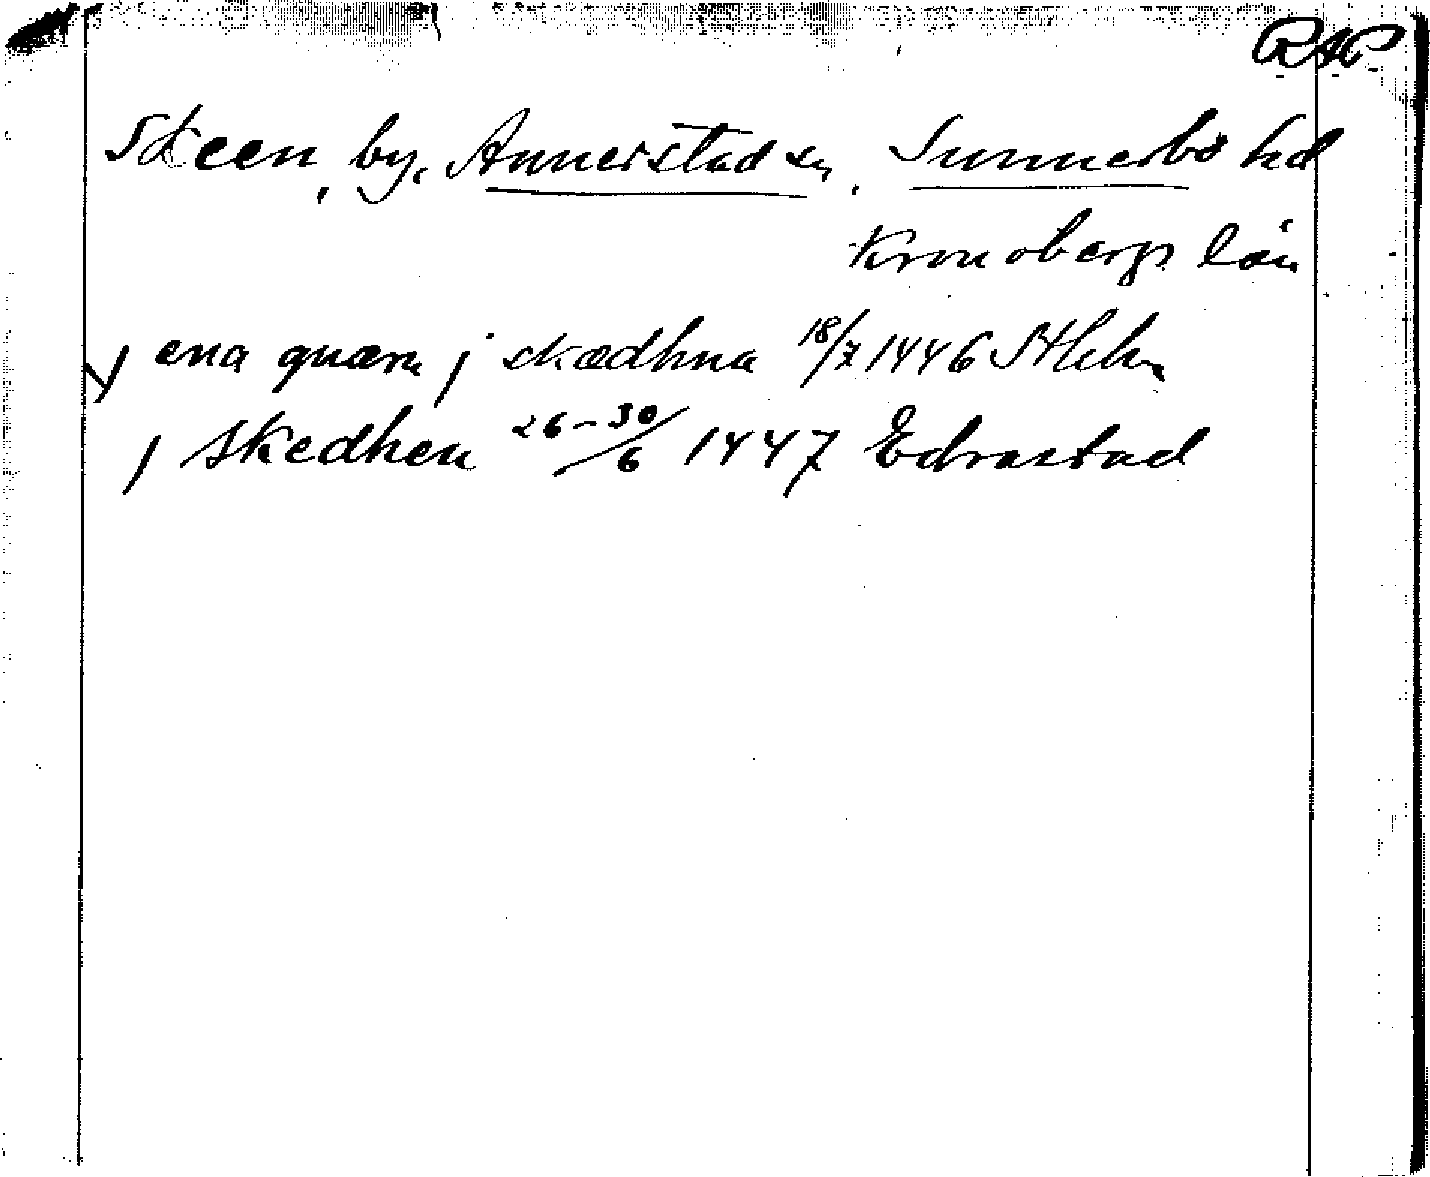 RAP
Skeen, by, Annerstad sn, Sunnerbo hd
Kronobergs län
y ena quærn j skædhna 18/7 1446 Sthlm
j Skedhen 26-30/6 1447 Edrastad